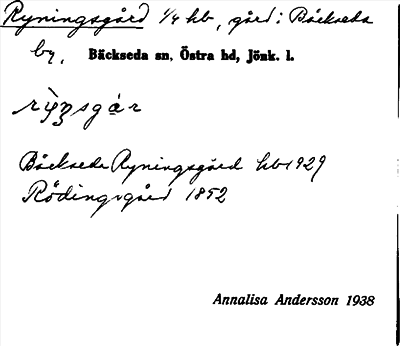 Ryningsgård 1/4 hb, gård i Bäckseda
by. Bäckseda sn, Östra hd, Jönk. l.
rỳŋsgạr
Bäckseda Ryningsgård hb 1929
Rödingsgård 1852
Annalisa Andersson 1938